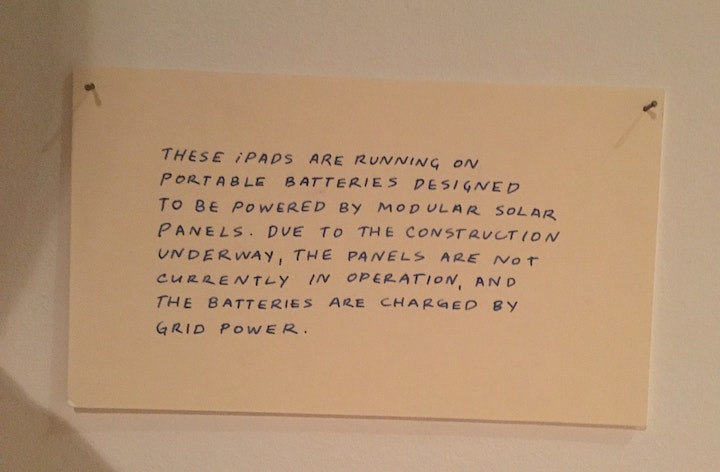 THESE iPADS ARE RUNNING ON
PORTABLE BATTERIES DESIGNED
TO BE POWERED BY MODULAR SOLAR
PANELS. DUE TO THE CONSTRUCTION
UNDERWAY, THE PANELS ARE NOT
CURRENTLY IN OPERATION, AND
THE BATTERIES ARE CHARGED BY
GRID POWER.